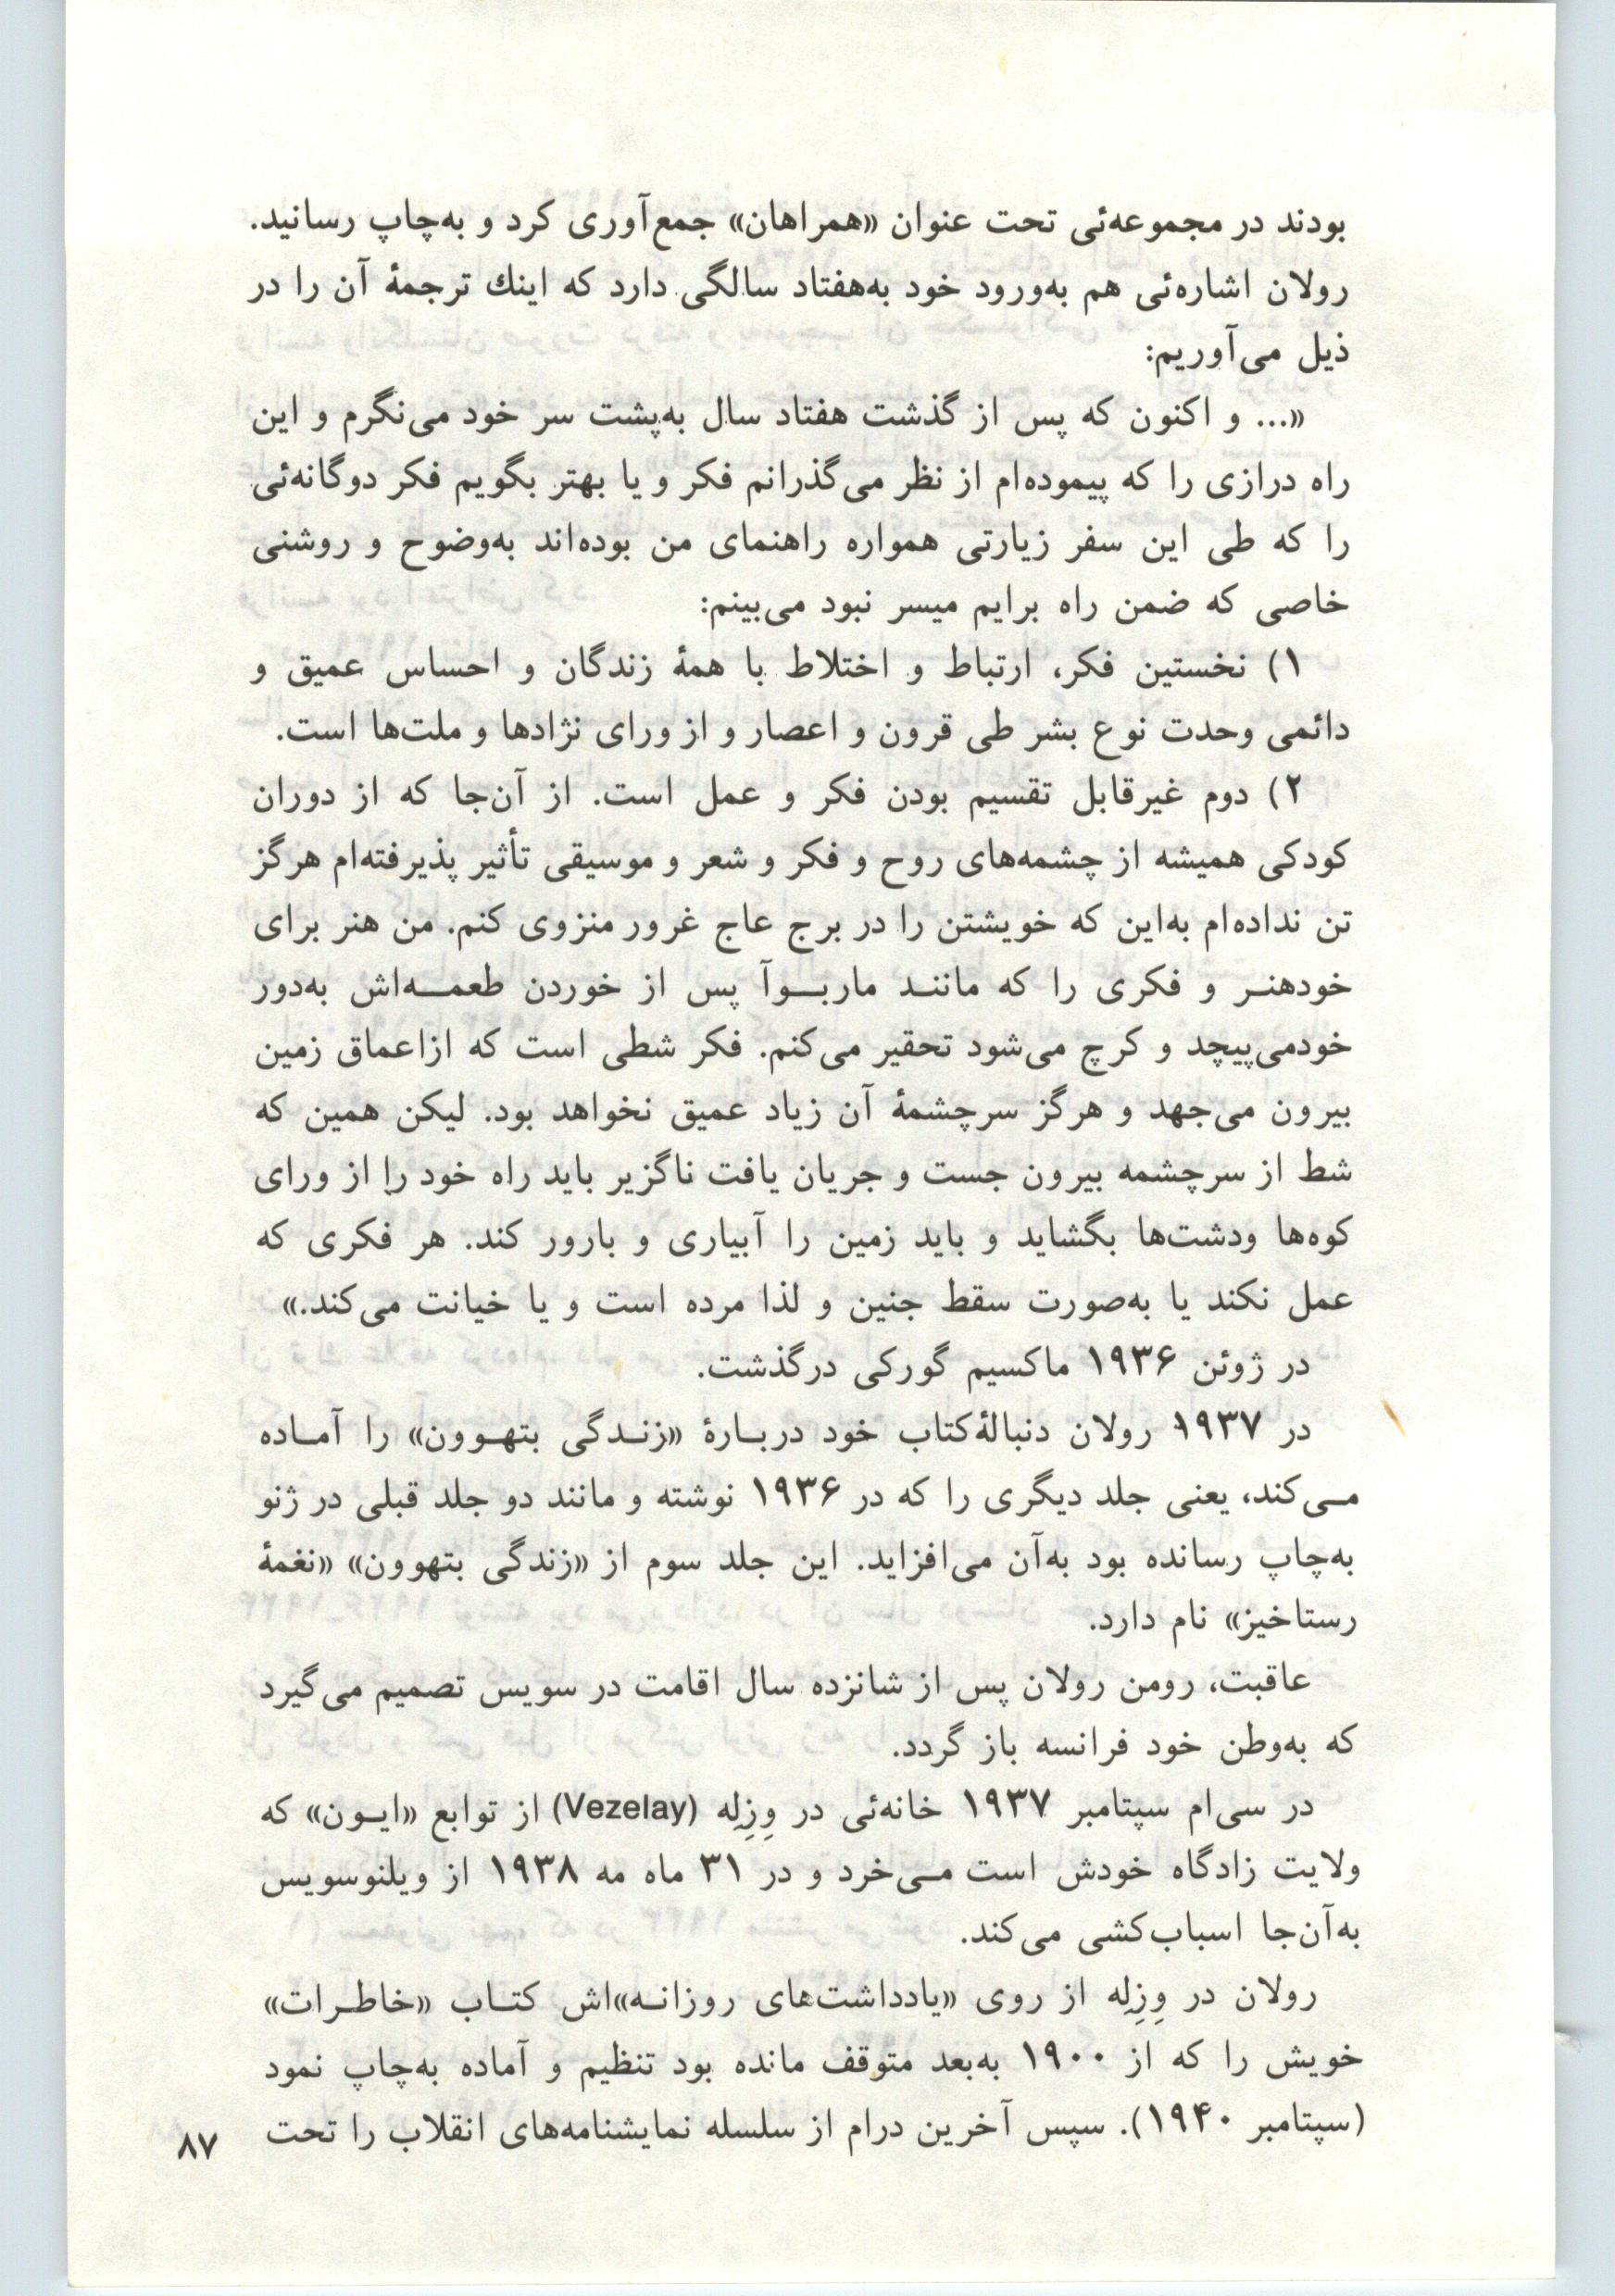 بودند در مجموعه‌ئی تحت عنوان «همراهان» جمع‌آوری کرد و به‌چاپ رسانید.
رولان اشاره‌ئی هم به‌ورود خود به‌هفتاد سالگی دارد که اینك ترجمهٔ آن را در
ذیل می‌آوریم:
«... و اکنون که پس از گذشت هفتاد سال به‌پشت سر خود می‌نگرم و این
راه درازی را که پیموده‌ام از نظر می‌گذرانم فکر و یا بهتر بگویم فکر دوگانه‌ئی
را که طی این سفر زیارتی همواره راهنمای من بوده‌اند به‌وضوح و روشنی
خاصی که ضمن راه برایم میسر نبود می‌بینم:
۱) نخستین فکر، ارتباط و اختلاط با همهٔ زندگان و احساس عمیق و
دائمی وحدت نوع بشر طی قرون و اعصار و از ورای نژادها و ملت‌ها است.
۲) دوم غیرقابل تقسیم بودن فکر و عمل است. از آن‌جا که از دوران
کودکی همیشه از چشمه‌های روح و فکر و شعر و موسیقی تأثیر پذیرفته‌ام هرگز
تن نداده‌ام به‌این که خویشتن را در برج عاج غرور منزوی کنم. من هنر برای
خودهنـر و فکری را که ماننـد ماربـوآ پس از خوردن طعمـه‌اش به‌دور
خودمی‌پیچد و کرچ می‌شود تحقیر می‌کنم. فکر شطی است که ازاعماق زمین
بیرون می‌جهد و هرگز سرچشمهٔ آن زیاد عمیق نخواهد بود. لیکن همین که
شط از سرچشمه بیرون جست و جریان یافت ناگزیر باید راه خود را از ورای
کوه‌ها ودشت‌ها بگشاید و باید زمین را آبیاری و بارور کند. هر فکری که
عمل نکند یا به‌صورت سقط جنین و لذا مرده است و یا خیانت می‌کند.»
در ژوئن ۱۹۳۶ ماکسیم گورکی درگذشت.
در ۱۹۳۷ رولان دنبالهٔ‌کتاب خود دربـارهٔ «زنـدگی بتهـوون» را آمـاده
مـی‌کند، یعنی جلد دیگری را که در ۱۹۳۶ نوشته و مانند دو جلد قبلی در ژنو
به‌چاپ رسانده بود به‌آن می‌افزاید. این جلد سوم از «زندگی بتهوون» «نغمهٔ
رستاخیز» نام دارد.
عاقبت، رومن رولان پس از شانزده سال اقامت در سویس تصمیم می‌گیرد
که به‌وطن خود فرانسه باز گردد.
در سی‌ام سپتامبر ۱۹۳۷ خانه‌ئی در وِزِلِه (Vezelay) از توابع «ایـون» که
ولایت زادگاه خودش است مـی‌خرد و در ۳۱ ماه مه ۱۹۳۸ از ویلنوسویس
به‌آن‌جا اسباب‌کشی می‌کند.
رولان در وِزِلِه از روی «یادداشت‌های روزانـه»اش کتـاب «خاطـرات»
خویش را که از ۱۹۰۰ به‌بعد متوقف مانده بود تنظیم و آماده به‌چاپ نمود
(سپتامبر ۱۹۴۰). سپس آخرین درام از سلسله نمایشنامه‌های انقلاب را تحت
۸۷